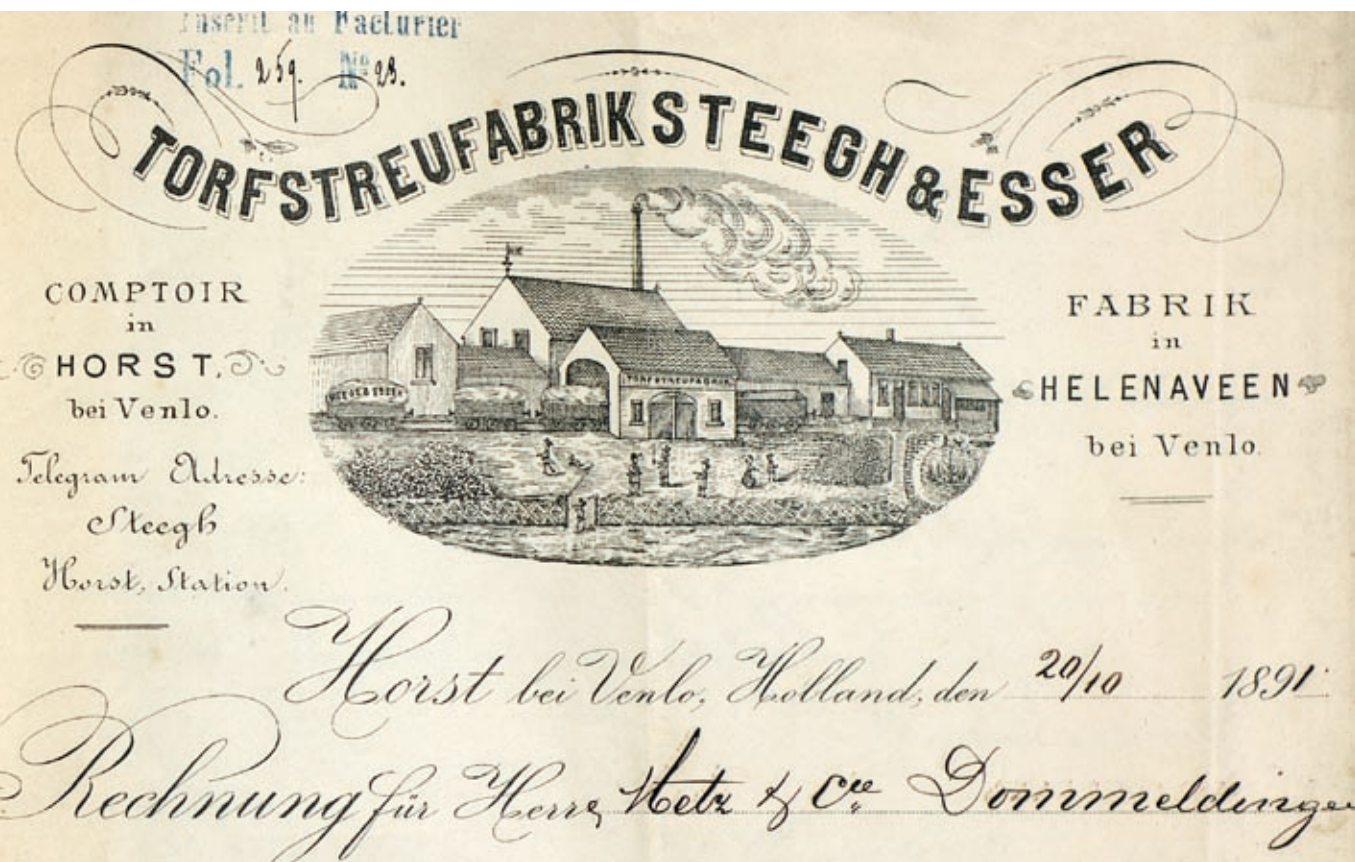 Inscrit au Facturier
Fol. 259. № 28.
TORFSTREUFABRIK STEEGH & ESSER
COMPTOIR
in
HORST,
bei Venlo.
Telegram Adresse:
Steegh
Horst, Station.
TORFSTREUFABRIK
FABRIK
in
HELENAVEEN
bei Venlo.
Horst bei Venlo, Holland, den 20/10 1891.
Rechnung für Herrn Metz & Cie Dommeldingen